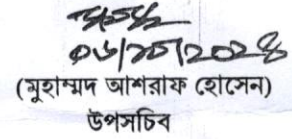 ০৬/১০/২০২৪
(মুহাম্মদ আশরাফ হোসেন)
উপসচিব